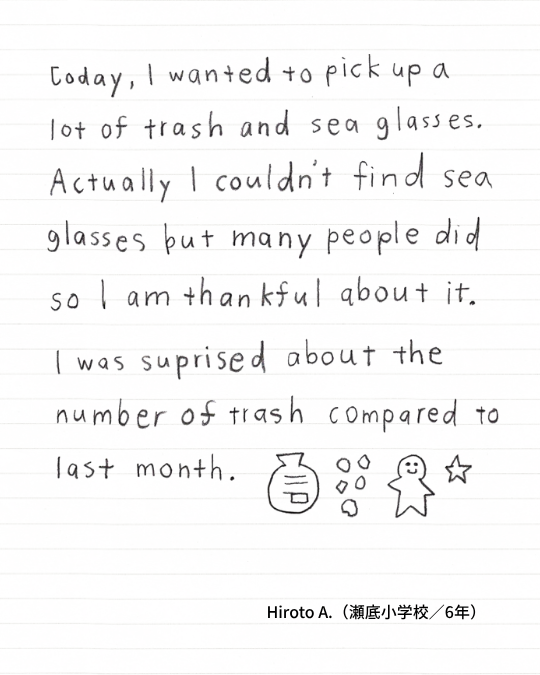 Today, I wanted to pick up a
lot of trash and sea glasses.
Actually I couldn't find sea
glasses but many people did
so I am thankful about it.
I was suprised about the
number of trash compared to
last month.
Hiroto A.（瀬底小学校／6年）